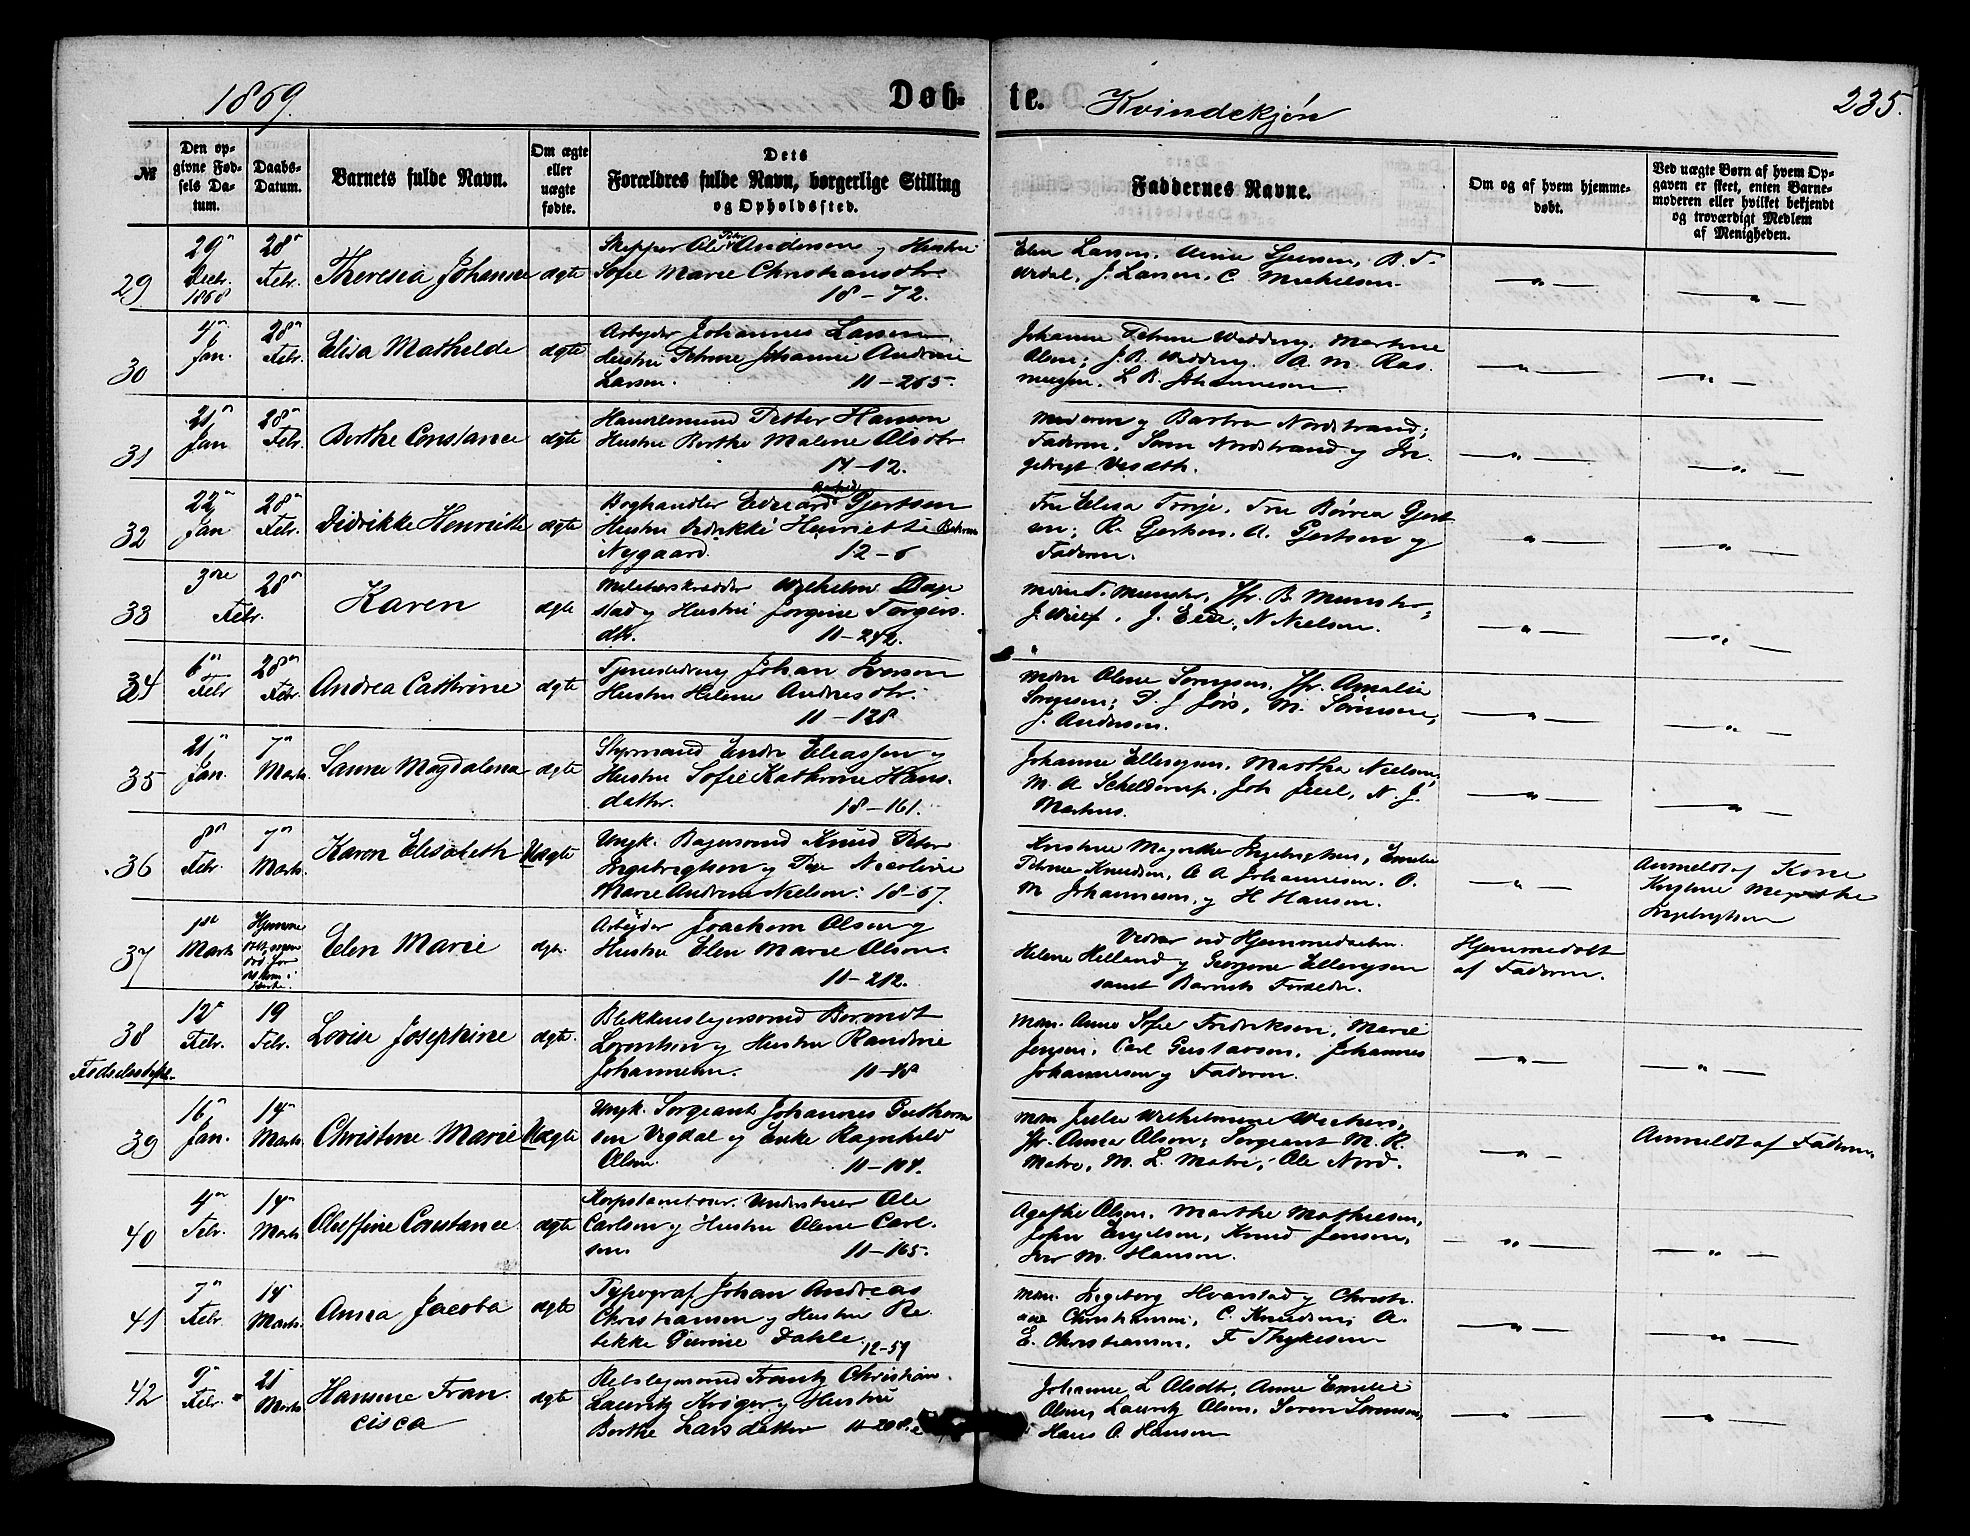 1869.
Døb- te.
Kvindekjøn
235.
№
Den op-
givne Fød-
sels Da-
tum.
Daabs-
Datum.
Barnets fulde Navn.
Om ægte
eller
uægte
fødte.
Dets
Forældres fulde Navn, borgerlige Stilling
og Opholdssted.
Faddernes Navne.
Om og af hvem hjemme-
døbt.
Ved uægte Børn af hvem Op-
gaven er skeet, enten Barne-
moderen eller hvilket bekjendt
og troværdigt Medlem
af Menigheden.
29
29
Decbr.
1868
28
Febr.
Theresia Johanne
ægte
Skipper Ole Peter Andersen og Hustru
Sofie Marie Christiansdtr.
18-72.
J. Larsen, C. Michelsen
30
4
Jan.
28
Febr.
Elisa Mathilde
ægte
Arbeider Johannes Larsen
Hustru Petrine Johanne Andrine
Larsen. 11-265.
Johanne Petrine Wedding, Martine
Olsen; J. R. Wedding. A. M. Ras-
mussen. L. B. Johannesen
31
21
Jan
28
Febr.
Berthe Constance
ægte
Handelsmand Petter Hansen
Hustru Berthe Malene Olsdtr
14-12.
Moderen og Barbra Nordstrand;
Faderen, Søren Nordstrand og In-
gebrigt
32
22
Jan
28
Febr.
Didrikke Henriette
ægte
Boghandler Edvard Gjertsen
Hustru Didrikke Henriette
Nygaard. 12-6
Fru Elisa Troye, Fru Gjert-
sen; R. Gjertsen. A. Gjertsen og
Faderen.
33
3die
Febr.
28
Karen
ægte
Wilhelm Dag-
stad og Hustru Jorgine Torgers-
dtr. 11-242.
Munster, Jfr. B. Munster,
J. Eide, N. Nielsen.
34
6
Febr
28
Febr.
Andrea Cathrine
ægte
Tjenestedreng Johan Iversen
Hustru Helene Andreasdtr.
11-128
Mdm Olene Sørensen. Jfr. Amalie
Sørensen; M. Sørensen,
J. Andersen.
35
21
Jan.
7
Marts.
Sanne Magdalena
ægte
Styrmand Endre Eliassen og
Hustru Sofie Kathrine Hans-
datter. 18-161.
Johanne Ellingsen. Martha Nielsen,
M. A. Schelderup, Joh Juel, N. J.
Martens.
36
8
Febr.
7
Marts.
Karen Elisabeth
Uægte
Ungk. Bagersvend Knud Peter
Ingebrigtsen og Pige Nicoline
Marie Andrea Nielsen: 18-67.
Kristine Magrethe Ingebrigtsen, Emilie
Petrine Knudsen, C. A. Johannesen. O.
M. Johannesen, og H. Hansen.
Anmeldt af Kone
Kristine Magrethe
Ingebrigtsen
37
1ste
Marts
Hjemme
Elen Marie
ægte.
Arbeider Joachim Olsen og
Hustru Elen Marie Olsen.
11-212.
Vidner ved Hjemmedaaben.
Helene Helland og Georgine Ellingsen
samt Barnets Forældre.
Hjemmedøbt
af Faderen.
38
Fødselsstiftelsen
12
Febr.
19
Febr.
Lovise Josephine
ægte.
Blikkenslagersvend Berendt
Lorentsen og Hustru Randine
Johannesen.
Mdm. Anne Sofie Fredriksen, Marie
Jensen, Carl Gustavson. Johannes
Johannesen og Faderen.
39
16
Jan.
14
Marts.
Christine Marie
Uægte
Ungk. Sergeant Johannes Guthorm-
sen Vigdal og Enke Ragnhild
Olsen. 11-104.
Mdm. Julie Wilhelmine Wickers,
Jfr. Anna Olsen; Sergeant M. R.
Matre, M. L. Matre, Ole Nord.
Anmeldt af Faderen.
40
4
Febr.
14
Marts
Oleffine Constance
ægte
Ole
Carlsen og Hustru Olene Carl-
sen. 11-165.
Agathe Olsen. Marthe Mathiesen,
John Engelsen, Knud Jensen,
Iver M. Hansen.
41
7
Febr.
14
Marts.
Anna Jacoba
ægte
Typograf Johan Andreas
Christiansen og Hustru Re-
bekke Dahle. 12-59
Mdm. Ingeborg Hvarstad og Christi-
ane Christiansen, C. Knudsen, A.
E. Christiansen, F. Thykesen
42
9
Febr.
21
Marts.
Hansine Fran-
cisca
ægte
Frantz Christian
Lauritz Krøger og Hustru
Berthe Larsdatter 11-208.
Johanne L. Olsdtr, Anne Emilie
Olsen, Lauritz Olsen, Søren Sørensen,
Hans A. Hansen